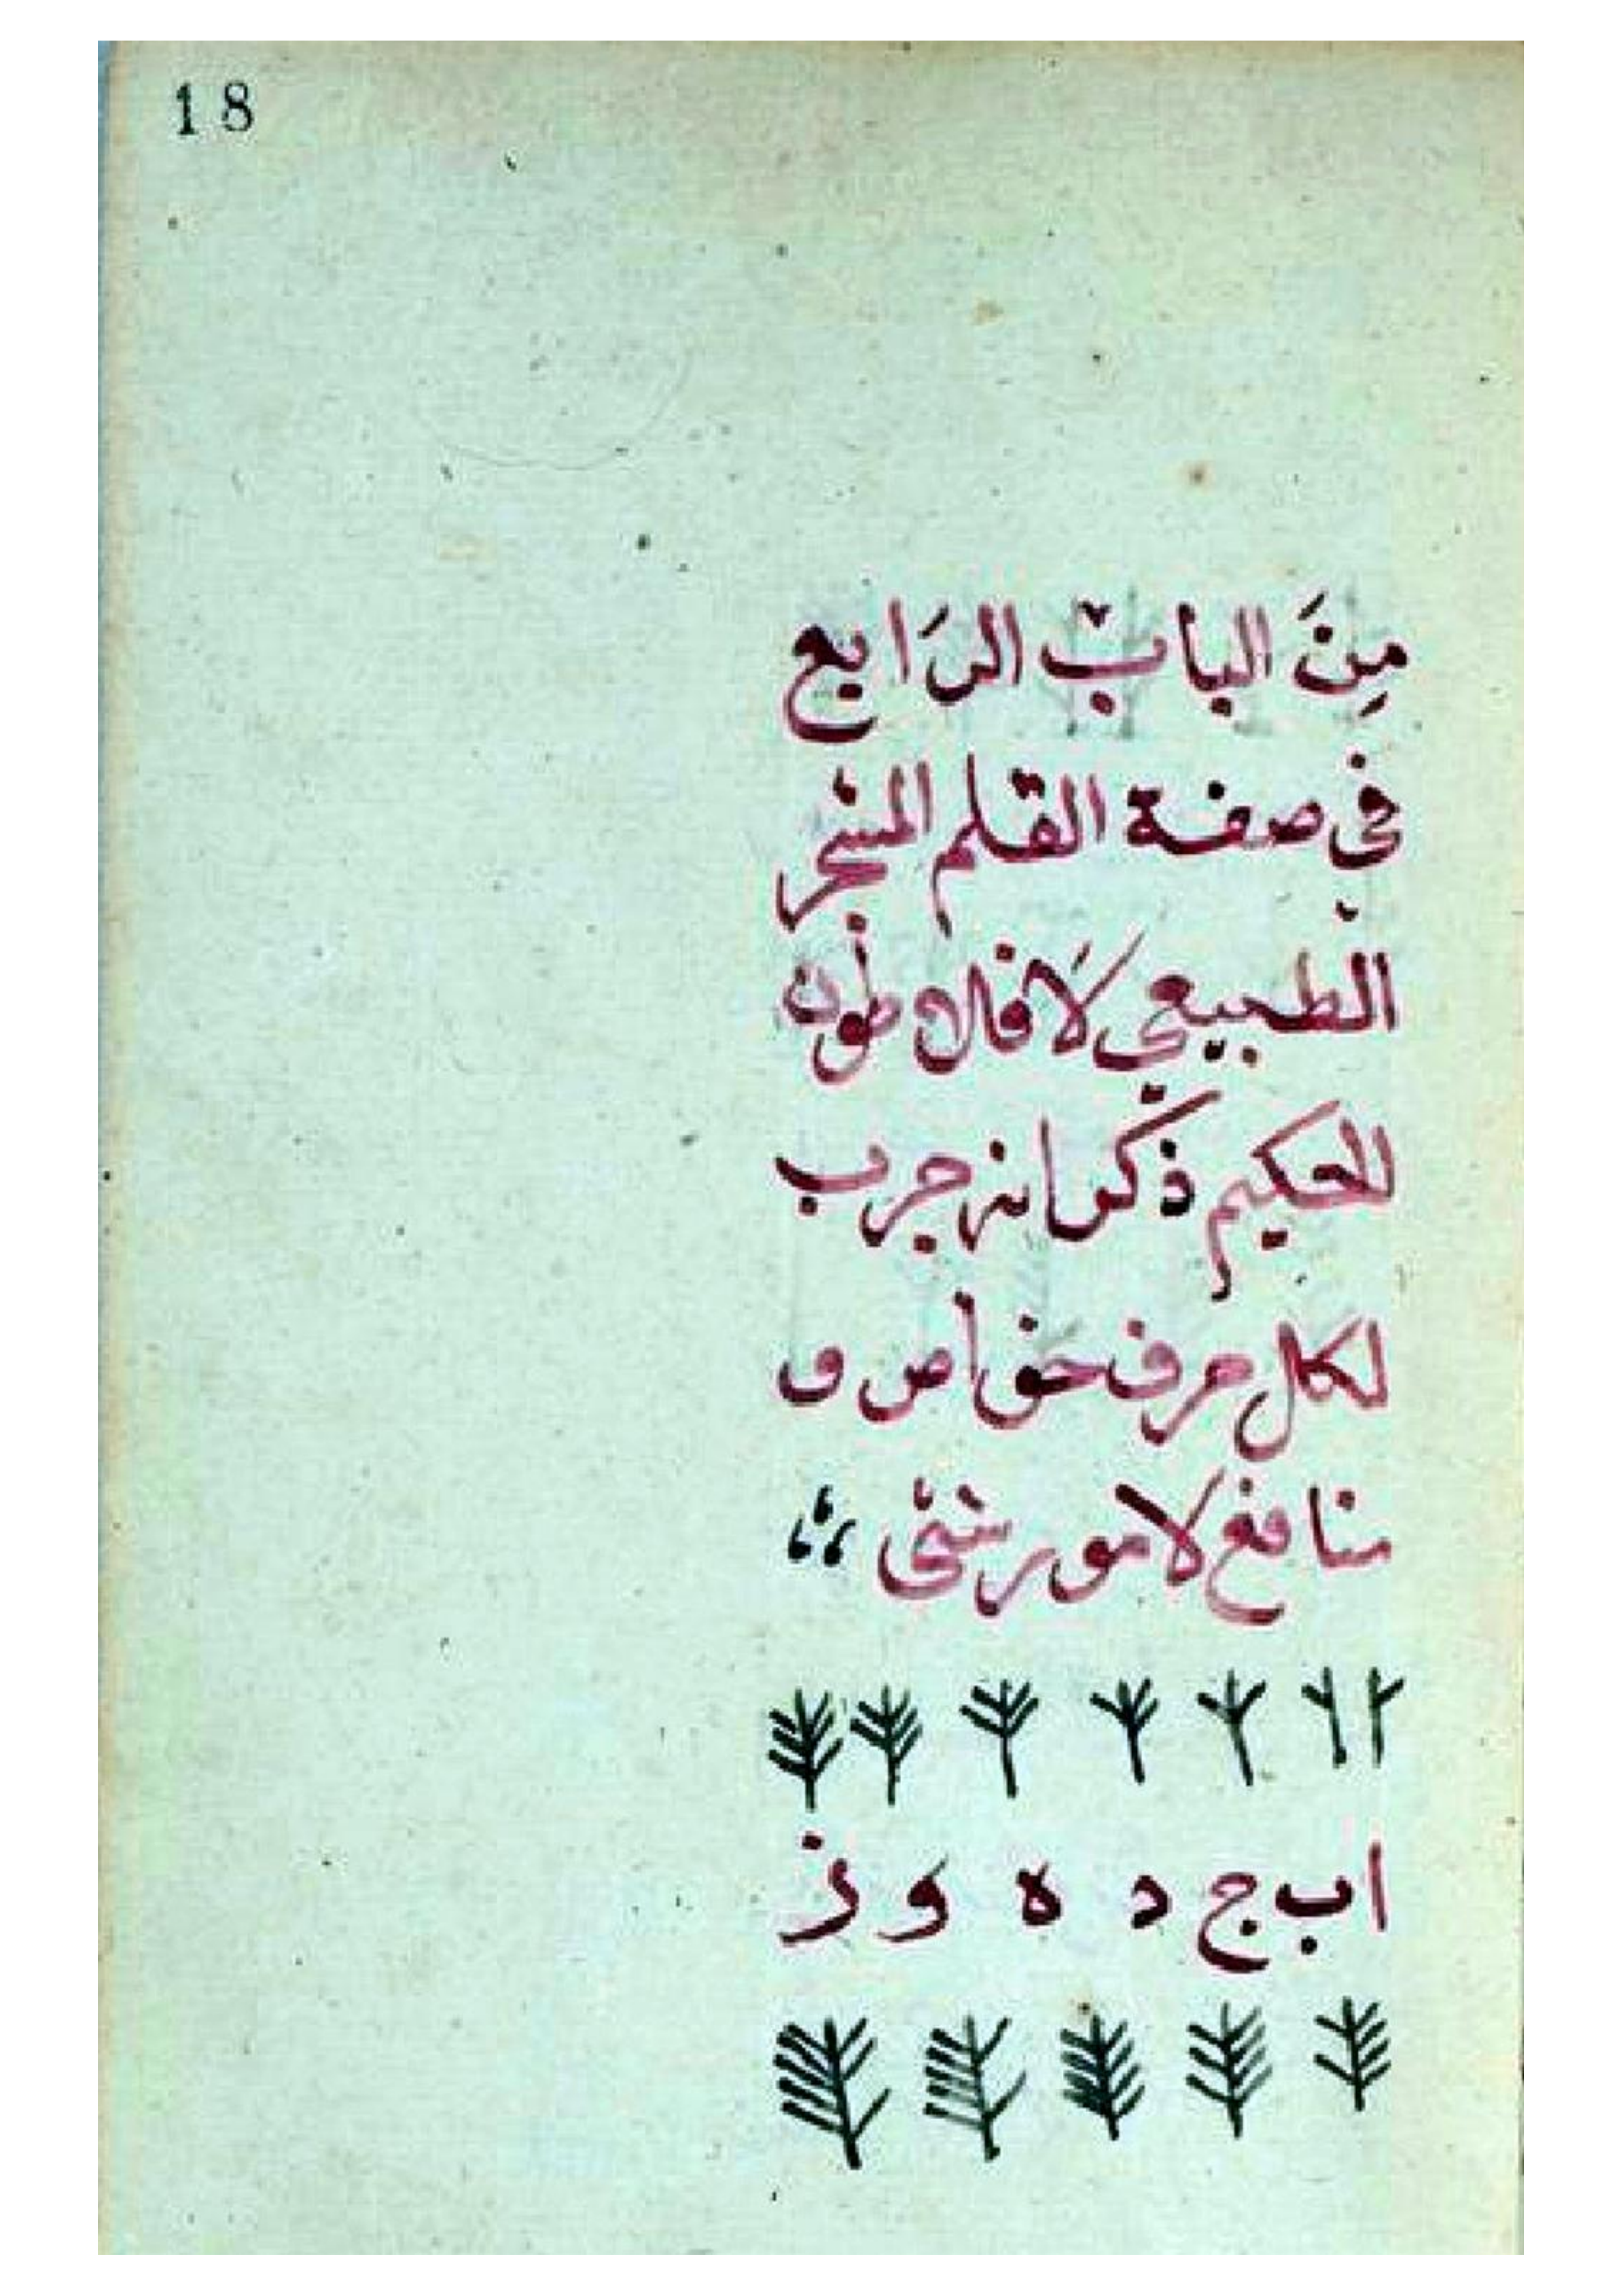 18
مِنَ الباب الرَابع
فى صفة القلم المشجر
الطبيعى لَافلاطون
الحكيم ذكر انه جرب
لكل حرف خواص و
منافع لامور شتى
ا ب ج د ه و ز